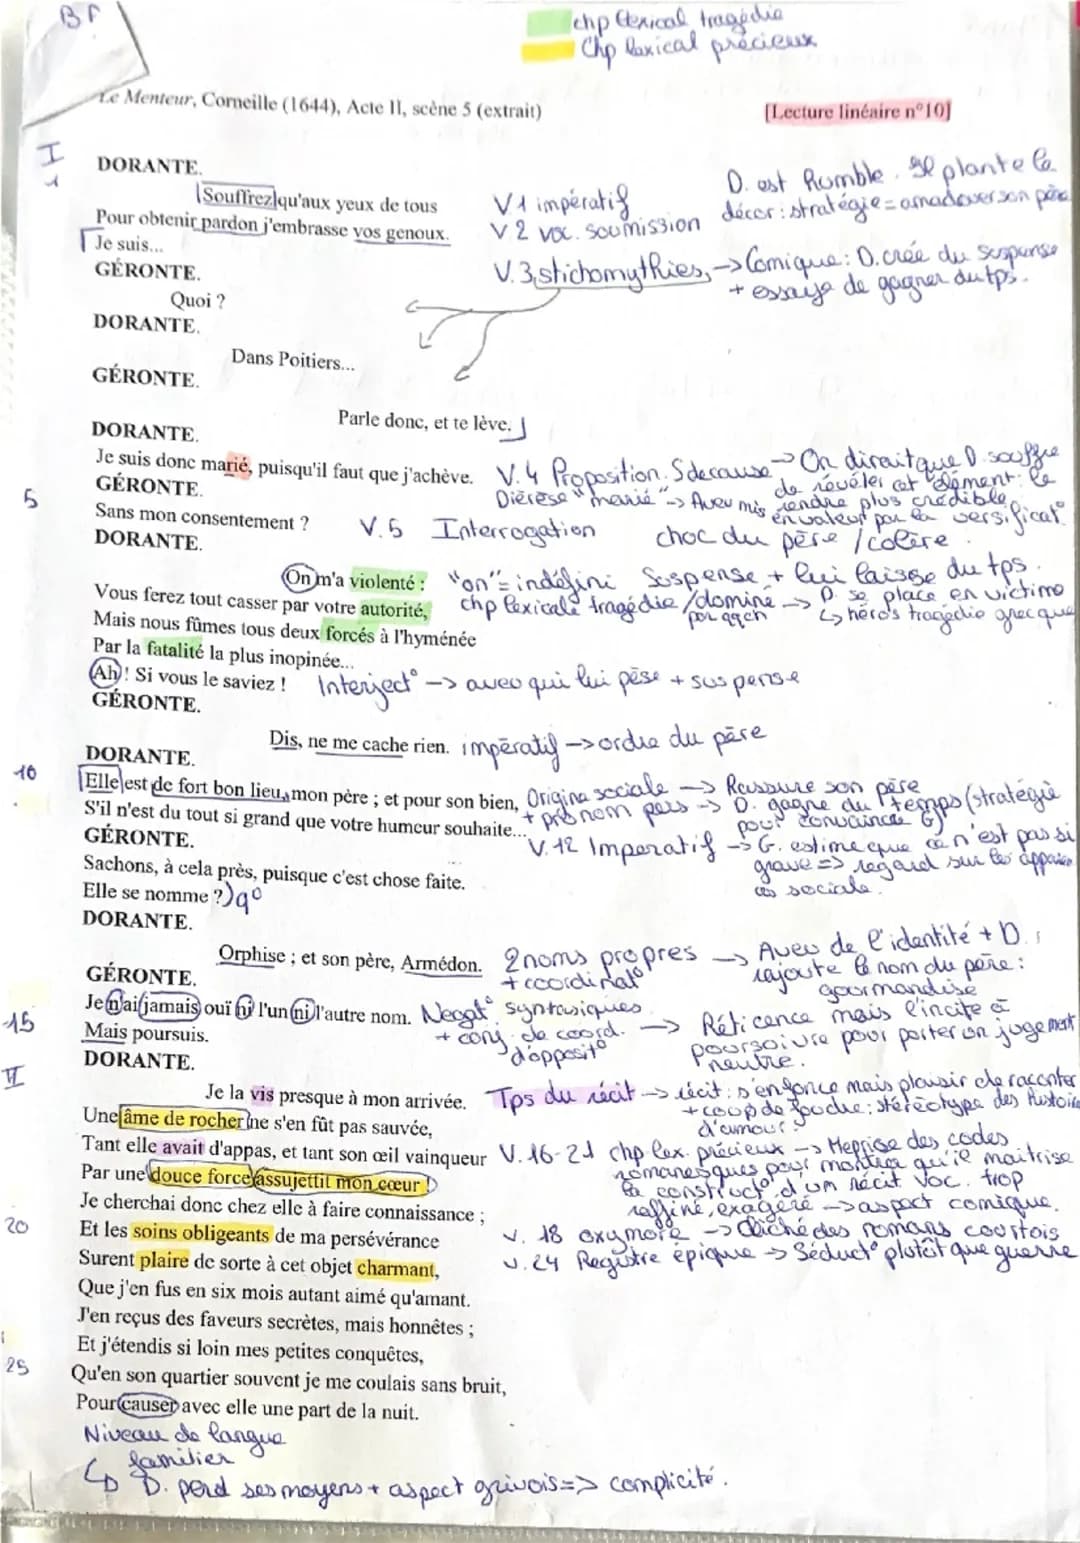 BF
chp lexical tragédie
Chp lexical précieux
Le Menteur, Corneille (1644), Acte II, scène 5 (extrait)
[Lecture linéaire n°10]
I
1
DORANTE.
Souffrez qu'aux yeux de tous
Pour obtenir pardon j'embrasse vos genoux.
Je suis...
V1 impératif
V2 voc. soumission
D. est humble. Il plante le
décor : stratégie = amadouer son père
V.3 stichomythies, -> Comique : D. crée du suspense
+ essaye de gagner du tps.
GÉRONTE.
Quoi ?
DORANTE.
Dans Poitiers...
GÉRONTE.
Parle donc, et te lève.
DORANTE.
Je suis donc marié, puisqu'il faut que j'achève.
V.4 Proposition. S de cause -> On dirait que D. souffre
de révéler cet élément : le
rendre plus crédible
Diérèse "marié" -> Aveu mis
en valeur par la versificat°
GÉRONTE.
5
Sans mon consentement ?
V.5 Interrogation
choc du père / colère.
DORANTE.
On m'a violenté :
"on" = indéfini Suspense + lui laisse du tps.
Vous ferez tout casser par votre autorité,
chp lexicale tragédie / dominé -> D. se place en victime
par qqch
↳ héros tragédie grecque
Mais nous fûmes tous deux forcés à l'hyménée
Par la fatalité la plus inopinée...
Ah ! Si vous le saviez !
Interject° -> aveu qui lui pèse + suspense
GÉRONTE.
Dis, ne me cache rien.
impératif -> ordre du père
DORANTE.
10
Elle est de fort bon lieu, mon père ; et pour son bien,
Origine sociale -> Rassure son père
+ pronom pers -> D. gagne du temps (stratégie
pour convaincre G)
S'il n'est du tout si grand que votre humeur souhaite...
V.12 Imperatif -> G. estime que ce n'est pas si
grave => regard sur les
sociale.
GÉRONTE.
Sachons, à cela près, puisque c'est chose faite.
Elle se nomme ?
q°
DORANTE.
Orphise ; et son père, Armédon.
2 noms propres
+ coordinat°
-> Aveu de l'identité + D.
rajoute le nom du père :
gourmandise
GÉRONTE.
Je n'ai jamais ouï ni l'un ni l'autre nom.
15
Mais poursuis.
Negat° syntaxiques
+ conj. de coord.
d'opposit°
-> Réticence mais l'incite à
poursuivre pour porter un jugement
neutre.
DORANTE.
II
Je la vis presque à mon arrivée.
Tps du récit -> récit : s'enfonce mais plaisir de raconter
+ coup de foudre : stéréotype des histoire
d'amour
Une âme de rocher ne s'en fût pas sauvée,
Tant elle avait d'appas, et tant son œil vainqueur
Par une douce force assujettit mon cœur !
V.16-21 chp lex. précieux -> Reprise des codes
romanesques pour montrer qu'il maitrise
la construct° d'un récit voc. trop
raffiné, exagéré -> aspect comique.
Je cherchai donc chez elle à faire connaissance ;
20
Et les soins obligeants de ma persévérance
v. 18 oxymore -> Cliché des romans courtois
Surent plaire de sorte à cet objet charmant,
v.24 Registre épique -> Séduct° plutôt que guerre
Que j'en fus en six mois autant aimé qu'amant.
J'en reçus des faveurs secrètes, mais honnêtes ;
Et j'étendis si loin mes petites conquêtes,
25
Qu'en son quartier souvent je me coulais sans bruit,
Pour causer avec elle une part de la nuit.
Niveau de langue
familier
↳ D. perd ses moyens + aspect grivois => complicité.